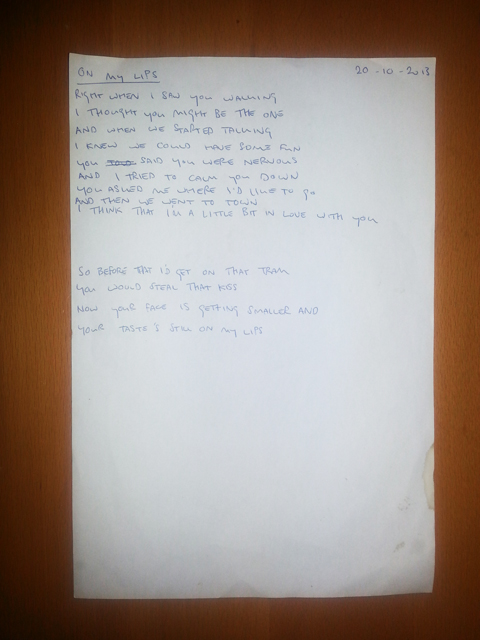 ON MY LIPS 20-10-2013
RIGHT WHEN I SAW YOU WALKING
I THOUGHT YOU MIGHT BE THE ONE
AND WHEN WE STARTED TALKING
I KNEW WE COULD HAVE SOME FUN
YOU SAID YOU WERE NERVOUS
AND I TRIED TO CALM YOU DOWN
YOU ASKED ME WHERE I'D LIKE TO GO
AND THEN WE WENT TO TOWN
I THINK THAT I'M A LITTLE BIT IN LOVE WITH YOU
SO BEFORE I'D GET ON THAT TRAM
YOU WOULD STEAL THAT KISS
NOW YOUR FACE IS GETTING SMALLER AND
YOUR TASTE'S STILL ON MY LIPS